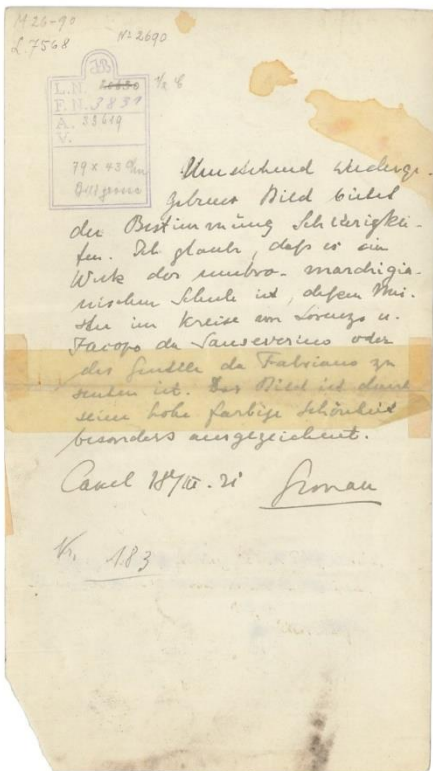 M 26-90
L. 7568
No 2690
L. N.
F. N. 3831
A. 33619
V.
79 x 43 c/m
Umstehend wiederge-
gebenes Bild bietet
der Bestimmung Schwierigkei-
ten. Ich glaube, daß es ein
Werk der umbro-marchigia-
nischen Schule ist, dessen Mei-
ster im Kreise von Lorenzo u.
Jacopo da Sanseverino oder
des Gentile da Fabriano zu
suchen ist. Das Bild ist durch
seine hohe farbige Schönheit
besonders ausgezeichnet.
Cassel 18/III. 21 Gronau
183